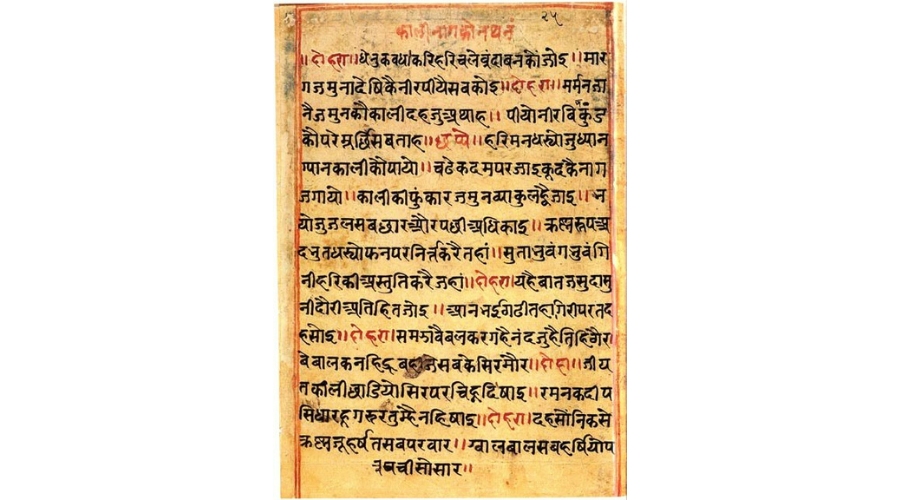 २५
कालीनागकोनथनं
॥दोहरा॥धेनुकवधाकरिहरिचलेवृंदावनकोजोइ॥मार
गजमुनादेषिकैनीरपीयैसबकोइ॥दोहरा॥मर्मनजा
नैजमुनकौकालीदहजुअथाह॥पीयोनीरबिकुंड
कौपरेमूर्छिसबताह॥छप्पै॥हरिमनधस्योजुध्यान
ग्यानकालीकौपायो॥चढेकदमपरजाइकूदकैनाग
जगायो॥कालीकीफुंकारजमुनव्याकुलह्वैजाइ॥भ
योजुजलसबछारऔरपछीअधिकाइ॥कृष्णरूपअ
दभुतधस्योफनपरनिर्त्तकरैतहां॥सुता
नीहरिकीअस्तुतिकरैजहां॥दोहरा॥यहैबातजसुदासु
नीदौरीअतिहितजोइ॥आनभईठाढीतहागिरीपरतद
हसोइ॥दोहरा॥समझावैबलकरगहैनंदजुहै
वेबालकनहि सबकेसिरमौर॥दोहा॥
तकालीछाडियोसिरपरचिह्नदिषाइ॥रमनकदीप
सिधारहूगरुरतुम्हैनहिषाइ॥दोहरा॥दहसौनिकसे
कृष्णजूहर्षतसबपरवार॥ग्वालबालसबहर्षियोप
सोसार॥